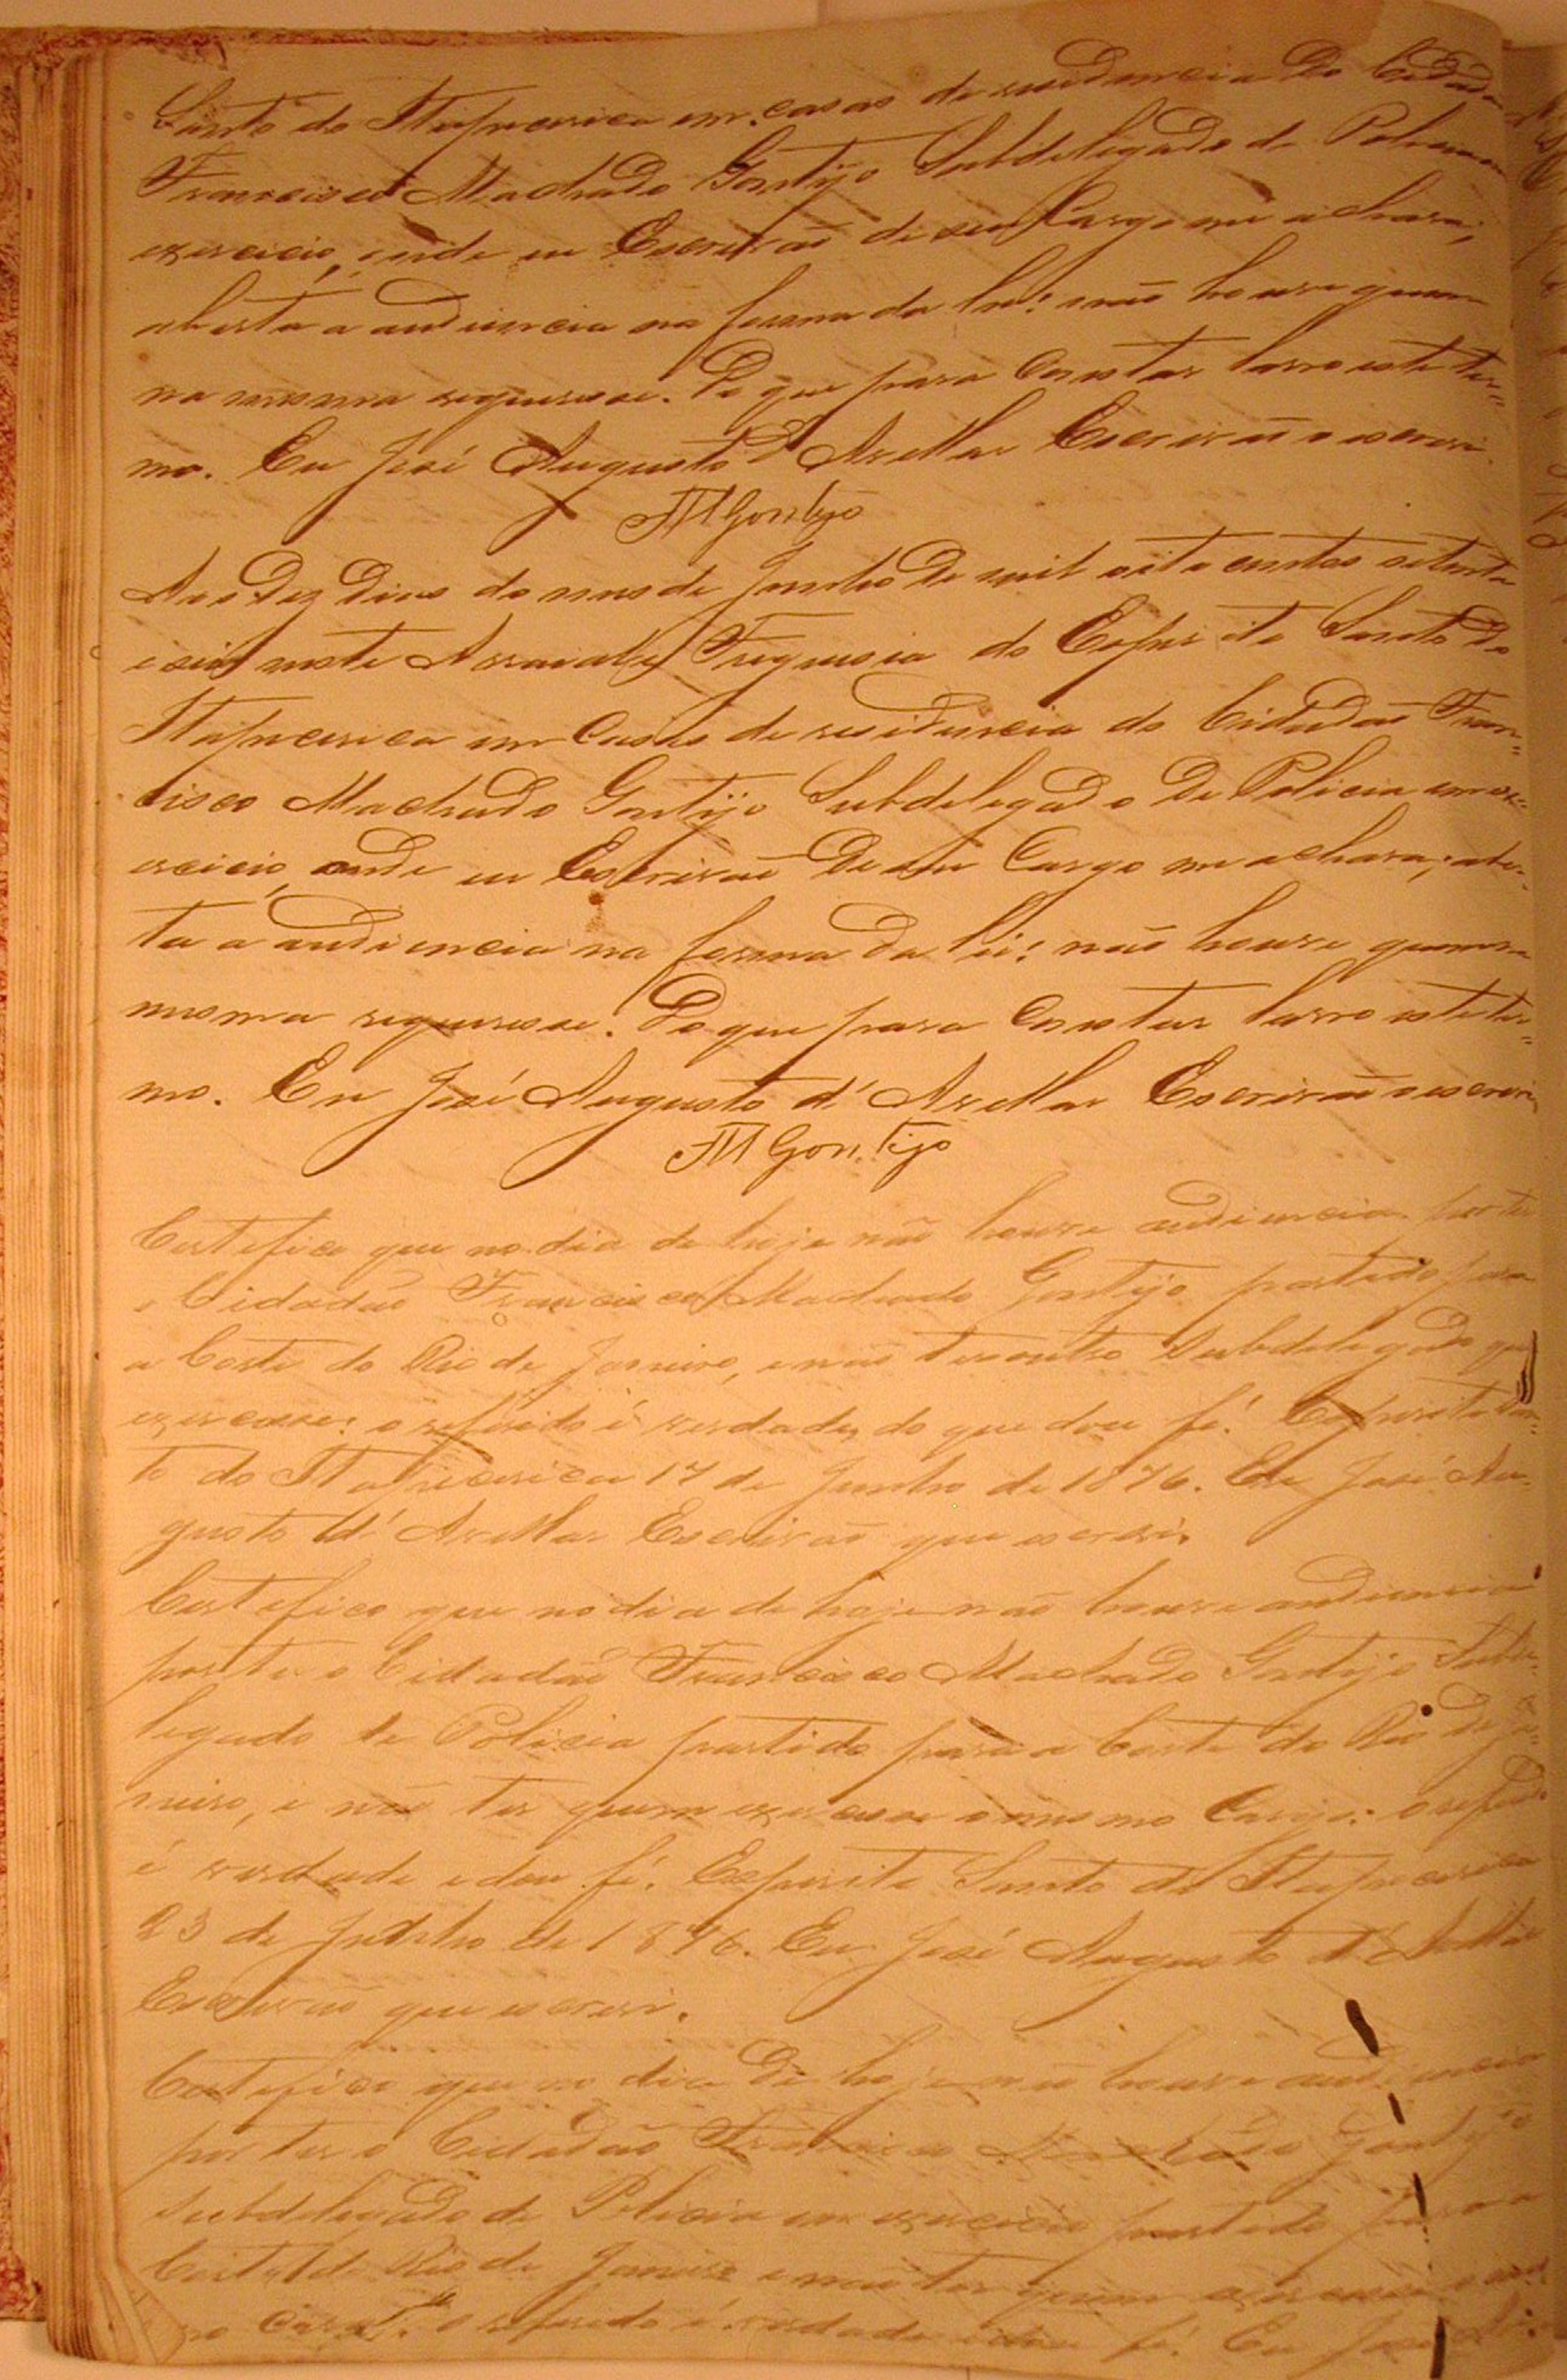 Santo do Itapecerica em casas de residencia do Cidadão
Francisco Machado Gontijo Subdelegado de Policia em
exercicio, onde eu Escrivão de seu Cargo me achava;
aberta a audiencia na forma da lei: não houve quem
na mesma requeresse. Do que para constar lavro este ter=
mo. Eu José Augusto d'Avellar Escrivão o escrevi.
FMGontijo
Aos dez dias do mes de Junho de mil oito centos setenta
e seis neste Arraial e Freguesia do Espirito Santo do
Itapecerica em Casas de residencia do Cidadão Fran=
cisco Machado Gontijo Subdelegado de Policia em ex=
ercicio, onde eu Escrivão de seu Cargo me achava; aber=
ta a audiencia na forma da lei: não houve quem na
mesma requeresse. Do que para constar lavro este ter=
mo. Eu José Augusto d'Avellar Escrivão o escrevi
FMGontijo
Certefico que no dia de hoje não houve audiencia por ter
o Cidadão Francisco Machado Gontijo partido para
a Corte do Rio de Janeiro, e não ter outro Subdelegado que
exercesse: o referido é verdade, do que dou fé. Espirito San=
to do Itapecerica 17 de Junho de 1876. Eu José Au=
gusto d'Avellar Escrivão que escrevi.
Certefico que no dia de hoje não houve audiencia
por ter o Cidadão Francisco Machado Gontijo Subde=
legado de Policia partido para a Corte do Rio de Ja=
neiro, e não ter quem exercesse o mesmo Cargo: o referido
é verdade e dou fé. Espirito Santo do Itapecerica
23 de Junho de 1876. Eu José Augusto d'Avellar
Escrivão que escrevi.
Certefico que no dia de hoje não houve audiencia
por ter o Cidadão Francisco Machado Gontijo
Subdelegado de Policia em exercicio partido para a
Corte do Rio de Janeiro e não ter quem exercesse o mes
mo Cargo: o referido é verdade e dou fé. Eu José